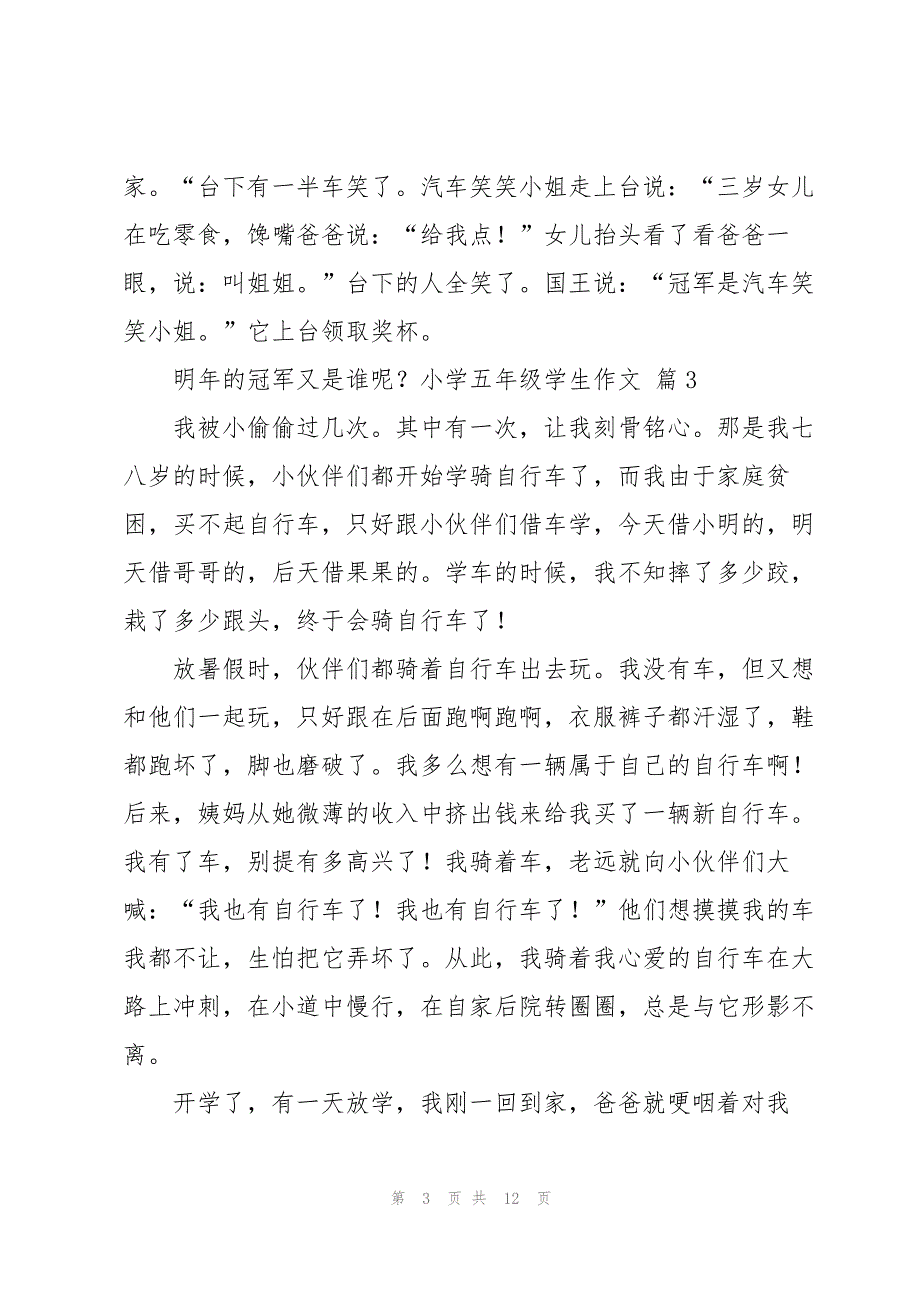 家。“台下有一半车笑了。汽车笑笑小姐走上台说：“三岁女儿
在吃零食，馋嘴爸爸说：“给我点！”女儿抬头看了看爸爸一
眼，说：叫姐姐。”台下的人全笑了。国王说：“冠军是汽车笑
笑小姐。”它上台领取奖杯。
明年的冠军又是谁呢？小学五年级学生作文 篇3
我被小偷偷过几次。其中有一次，让我刻骨铭心。那是我七
八岁的时候，小伙伴们都开始学骑自行车了，而我由于家庭贫
困，买不起自行车，只好跟小伙伴们借车学，今天借小明的，明
天借哥哥的，后天借果果的。学车的时候，我不知摔了多少跤，
栽了多少跟头，终于会骑自行车了！
放暑假时，伙伴们都骑着自行车出去玩。我没有车，但又想
和他们一起玩，只好跟在后面跑啊跑啊，衣服裤子都汗湿了，鞋
都跑坏了，脚也磨破了。我多么想有一辆属于自己的自行车啊！
后来，姨妈从她微薄的收入中挤出钱来给我买了一辆新自行车。
我有了车，别提有多高兴了！我骑着车，老远就向小伙伴们大
喊：“我也有自行车了！我也有自行车了！”他们想摸摸我的车
我都不让，生怕把它弄坏了。从此，我骑着我心爱的自行车在大
路上冲刺，在小道中慢行，在自家后院转圈圈，总是与它形影不
离。
开学了，有一天放学，我刚一回到家，爸爸就哽咽着对我
第 3 页 共 12 页